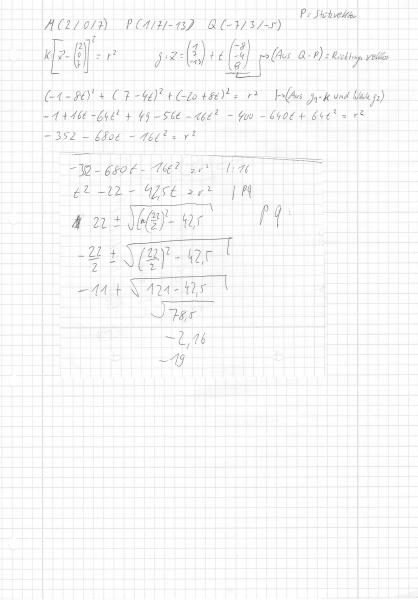 P = Stützvektor
M(2/0/7) P(1/7/-13) Q(-7/3/-5)
K: [x - (2 0 7)]² = r² g: x = (1 7 -13) + t (-8 -4 8) → (Aus Q-P) = Richtungsvektor
(-1-8t)² + (7-4t)² + (-20+8t)² = r² (Aus g in K und
-1 + 16t - 64t² + 49 - 56t - 16t² - 400 - 640t + 64t² = r²
-352 - 680t - 16t² = r²
-352 - 680t - 16t² = r² | :16
t² - 22 - 42,5t = r² | pq
22 ± √((22/2)² - 42,5) pq:
-22/2 ± √((22/2)² - 42,5)
-11 + √(121 - 42,5)
√78,5
-2,16
-19